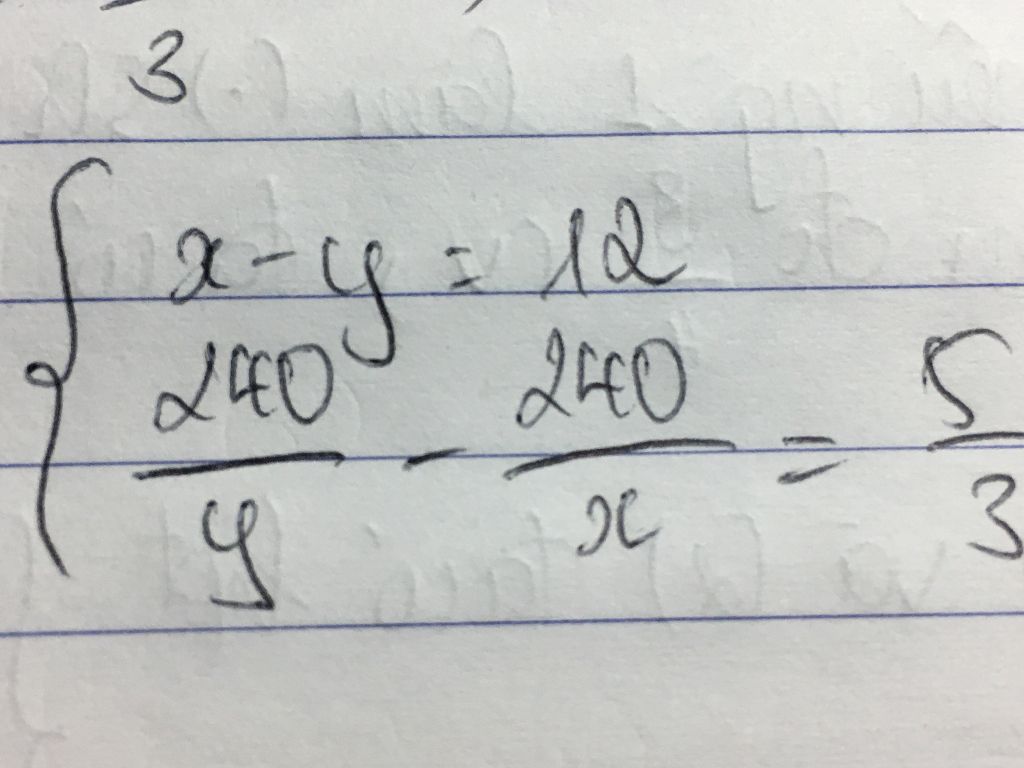 3
x - y = 12
240/y - 240/x = 5/3